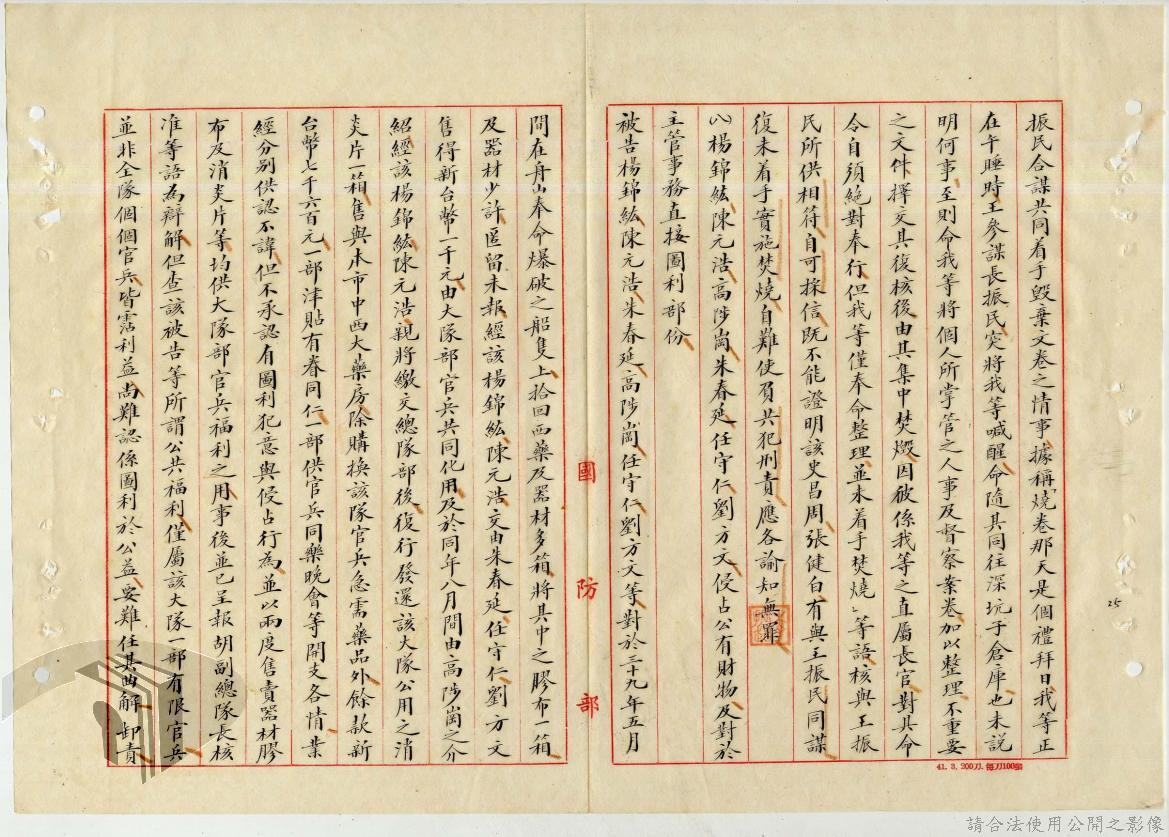 振民合謀共同着手毀棄文卷之情事據稱「燒卷那天是個禮拜日我等正
在午睡時王參謀長振民突將我等喊醒命隨其同往深坑子倉庫也未說
明何事至則命我等將個人所掌管之人事及督察案卷加以整理不重要
之文件擇交其復核後由其集中焚燬因彼係我等之直屬長官對其命
令自須絕對奉行但我等僅奉命整理並未着手焚燒」等語核與王振
民所供相符自可採信既不能證明該史昌周張健白有與王振民同謀
復未着手實施焚燒自難使負共犯刑責應各諭知無罪
八楊錦紘陳元浩高陟崗朱春延任守仁劉方文侵占公有財物及對於
主管事務直接圖利部份
被告楊錦紘陳元浩朱春延高陟崗任守仁劉方文等對於三十九年五月
國防部
間在舟山奉命爆破之船隻上拾回西藥及器材多箱將其中之膠布一箱
及器材少許匿留未報經該楊錦紘陳元浩交由朱春延任守仁劉方文
售得新台幣一千元由大隊部官兵共同化用及於同年八月間由高陟崗之介
紹經該楊錦紘陳元浩親將繳交總隊部後復行發還該大隊公用之消
炎片一箱售與本市中西大藥房除購換該隊官兵急需藥品外餘款新
台幣七千六百元一部津貼有眷同仁一部供官兵同樂晚會等開支各情業
經分別供認不諱但不承認有圖利犯意與侵占行為並以兩度售賣器材膠
布及消炎片等均供大隊部官兵福利之用事後並已呈報胡副總隊長核
准等語為辯解但查該被告等所謂公共福利僅屬該大隊一部有限官兵
並非全隊個個官兵皆霑利益尚難認係圖利於公益要難任其曲解卸責
41. 3. 200刀. 每刀100張
25
請合法使用公開之影像